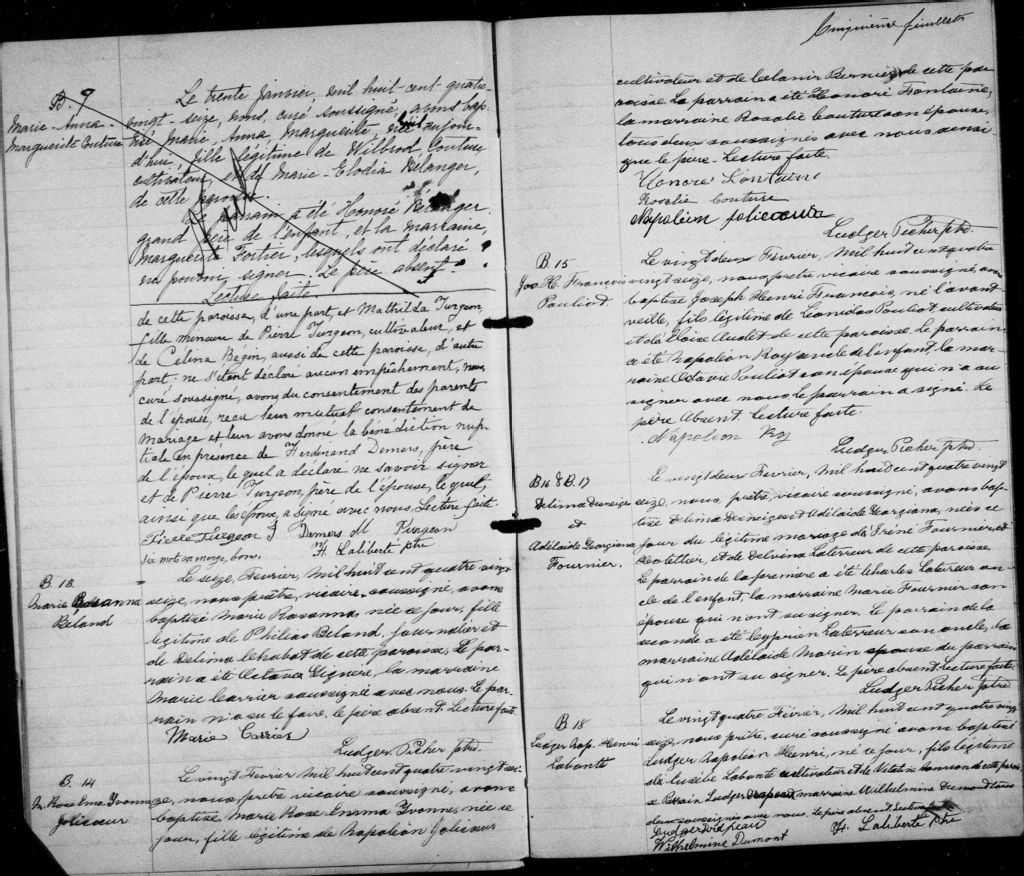 B. 9
Marie-Anna-
Marguerite Couture
Le trente janvier, mil huit cent quatre-
vingt-seize, nous, curé soussigné, avons bap-
tisé Marie, Anna, Marguerite, née aujour-
d'hui, fille légitime de Wilbrod Couture
cultivateur et de Marie-Elodia Bélanger,
de cette paroisse.
Le parrain a été Honoré Bélanger
grand père de l'enfant, et la marraine,
Marguerite Fortier, lesquels ont déclaré
ne pouvoir signer. Le père absent.
Lecture faite
de cette paroisse, d'une part, et Mathilda Turgeon,
fille mineure de Pierre Turgeon, cultivateur, et
de Celina Begin, aussi de cette paroisse, d'autre
part: ne s'étant déclaré aucun empêchement, nous,
curé soussigné, avons du consentement des parents
de l'épouse, reçu leur mutuel consentement de
mariage et leur avons donné la bénédiction nup-
tiale en présence de Ferdinand Demers, père
de l'époux, le quel a déclaré ne savoir signer
et de Pierre Turgeon, père de l'épouse, le quel,
ainsi que les époux, a signé avec nous. Lecture faite
Pierre Turgeon J Demers M Turgeon
Six mots en marge, bons. F. Laliberté ptre
B 13
Marie Rosanna
Béland
Le seize, Fevrier, mil huit cent quatre vingt
seize, nous prêtre, vicaire, soussigné, avons
baptisé Marie Rosanna, née ce jour, fille
légitime de Philias Béland, journalier et
de Delima Chabot de cette paroisse. Le par-
rain a été Octave Gigneré, la marraine
Marie Carrier soussignée avec nous. Le par-
rain n'a su le faire, le père absent. Lecture faite.
Marie Carrier
Ludger Picher ptre.
B. 14
M. Rose Ema Yvonne
Jolicœur
Le vingt Fevrier mil huit cent quatre vingt sei-
ze, nous prêtre vicaire soussigné, avons
baptisé, Marie Rose Emma Yvonne, née ce
jour, fille légitime de Napoléon Jolicœur
Cinquième feuillet
cultivateur et de Célanir Bernier de cette pa-
roisse. Le parrain a été Honoré Fontaine,
la marraine Rosalie Couture son épouse,
tous deux soussignés avec nous ainsi
que le père. Lecture faite.
Honoré Fontaine
Rosalie Couture
Napoléon Jolicoeur
Ludger Picher ptre.
B 15
Jos H. François
Pouliot
Le vingt deux Février, mil huit cent quatre
vingt seize, nous prêtre vicaire soussigné avons
baptisé Joseph Henri François, né l'avant
veille, fils légitime de Léonidas Pouliot, cultivateur
et de Eloise Audet de cette paroisse. Le parrain
a été Napoléon Roy oncle de l'enfant, la mar-
raine Octavie Pouliot son épouse qui n'a su
signer avec nous le parrain a signé. Le
père Absent. Lecture faite.
Napoléon Roy
Ludger Picher ptre.
B 16 & B. 17
Delima Desneiges
et
Adélaide Georgiana
Fournier.
Le vingt deux Fevrier, mil huit cent quatre vingt
seize, nous, prêtre, vicaire soussigné, avons bap-
tisé Delima Desneiges et Adélaide Georgiana, nées ce
jour du légitime mariage de Iréné Fournier,
hotellier, et de Delvina Laterreur de cette paroisse.
Le parrain de la première a été Charles Laterreur on-
cle de l'enfant, la marraine Marie Fournier son
épouse qui n'ont su signer. Le parrain de la
seconde a été Cyprien Laterreur son oncle, la
marraine Adélaide Morin epouse du parrain
qui n'ont su signer. Le père absent. Lecture faite.
Ludger Picher ptre
B 18
Ludger Nap. Henri
Labonté
Le vingt quatre Février, mil huit cent quatre vingt
seize, nous prêtre, curé soussigné avons baptisé
Ludger Napoléon Henri, né ce jour, fils légitime
de Eusèbe Labonté cultivateur et de de cette paroisse
Le Parrain Ludger marraine Wilhelmine Dumont tous
deux soussignés avec nous. Le père absent Lecture faite
Ludger
Wilhelmine Dumont
F. Laliberté ptre